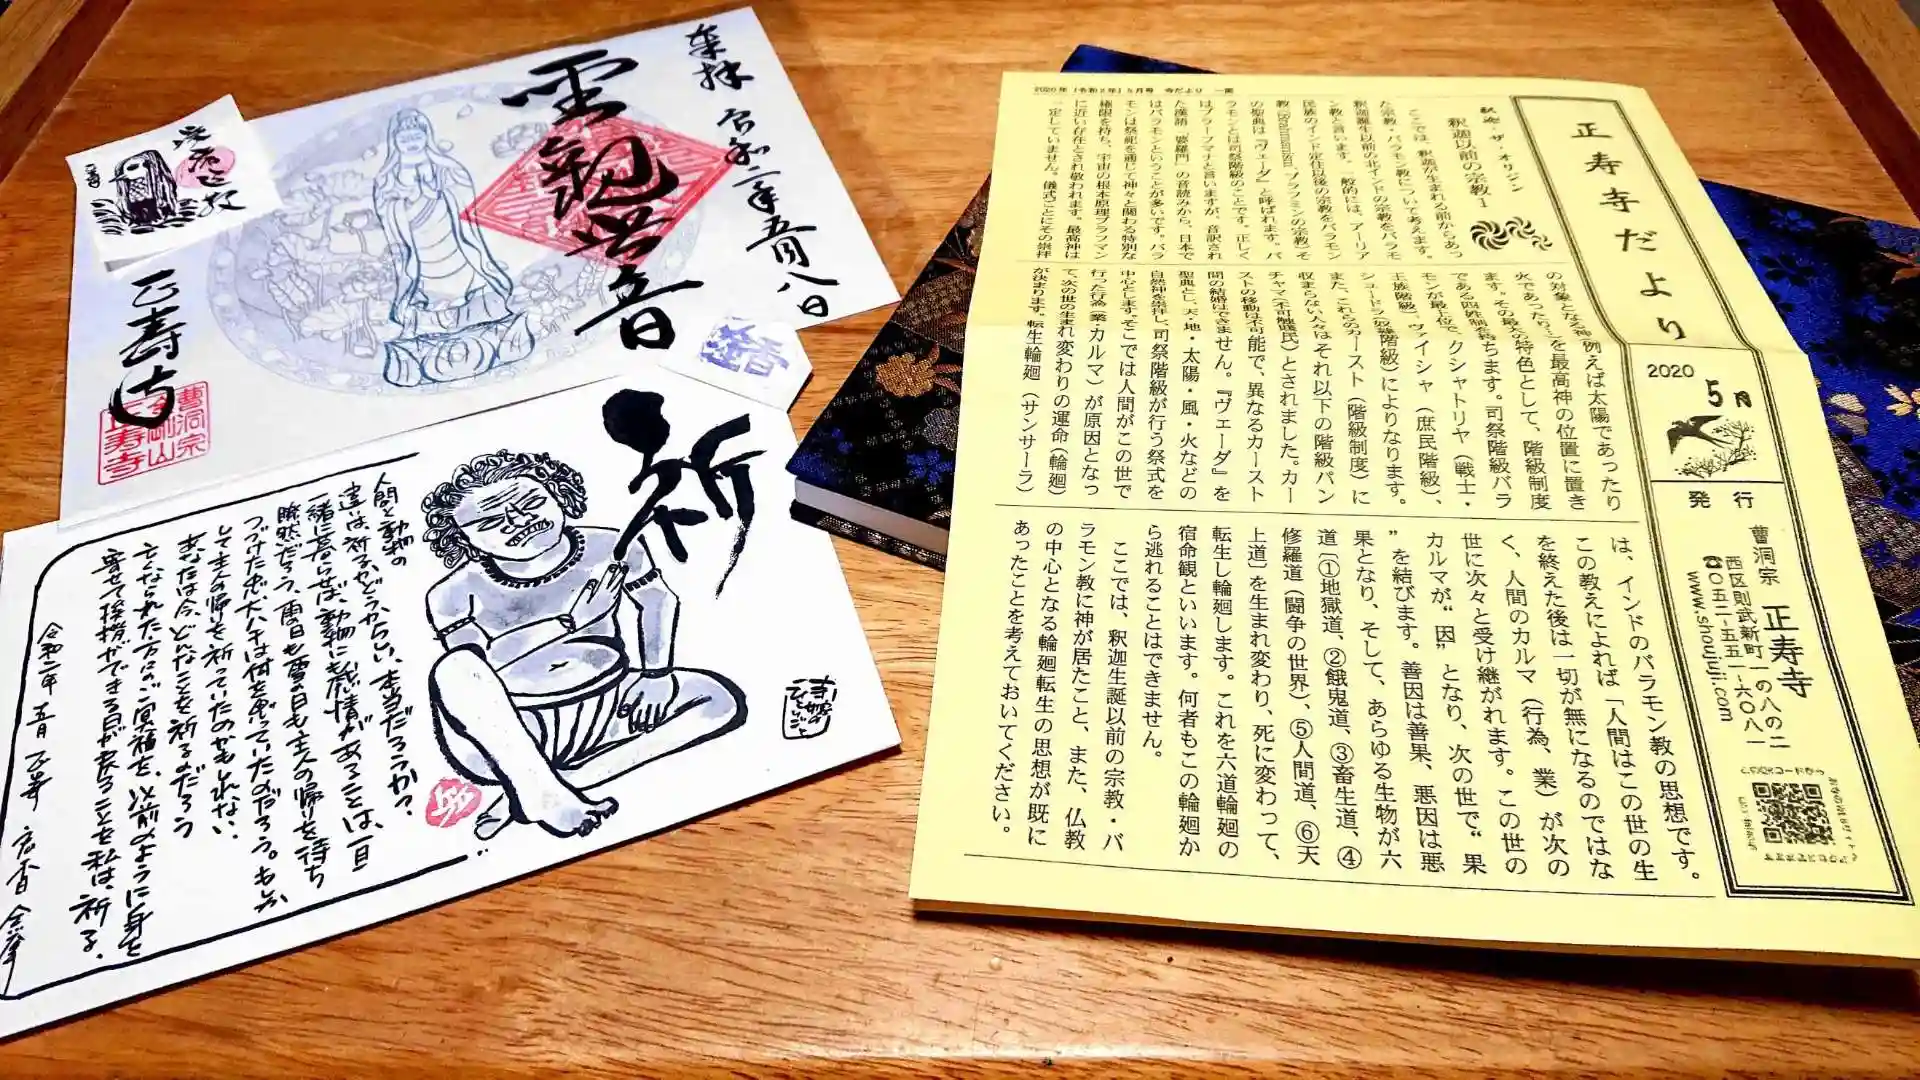 奉拝
令和二年五月八日
聖観世音
正寿寺
曹洞宗
正寿寺
疫病退散
正寿寺
祈
人間と動物の
違いは祈るかどうからしい、本当だろうか?
一緒に暮らせば、動物にも感情があることは、一目
瞭然だろう、雨の日も雪の日も主人の帰りを待ち
つづけた忠犬ハチは何を思っていたのだろう。もしか
して主人の帰りを祈っていたのかもしれない、
あなたは今、どんなことを祈るのだろう
亡くなられた方のご冥福を、以前のように身を
寄せて挨拶ができる日が来ることを私は、祈る。
令和二年 五月 正寿
2020年【令和2年】5月号 寺だより 一面
正寿寺だより
2020
5月
発行
曹洞宗 正寿寺
西区則武新町一の八の二
☎〇五二-五五一-六〇八一
www.shoujuji.com
釈迦・ザ・オリジン
釈迦以前の宗教1
ここでは、釈迦が生まれる前からあっ
た宗教・バラモン教について考えます。
釈迦誕生以前の北インドの宗教をバラモ
ン教と言います。一般的には、アーリア
民族のインド定住以後の宗教をバラモン
教(Brahmanism ブラフミンの宗教)そ
の聖典は『ヴェーダ』と呼ばれます。バ
ラモンとは司祭階級のことです。正しく
はブラーフマナと言いますが、音訳され
た漢語「婆羅門」の音読みから、日本で
はバラモンということが多いです。バラ
モンは祭祀を通じて神々と関わる特別な
権限を持ち、宇宙の根本原理ブラフマン
に近い存在とされ敬われます。最高神は
一定していません。儀式ごとにその崇拝
の対象となる神(例えば太陽であったり
火であったり)を最高神の位置に置き
ます。その最大の特色として、階級制度
である四姓制を持ちます。司祭階級バラ
モンが最上位で、クシャトリヤ(戦士・
王族階級)、ヴァイシャ(庶民階級)、
シュードラ(奴隷階級)によりなります。
また、これらのカースト(階級制度)に
収まらない人々はそれ以下の階級パン
チャマ(不可触賤民)とされました。カー
ストの移動は不可能で、異なるカースト
間の結婚はできません。『ヴェーダ』を
聖典とし、天・地・太陽・風・火などの
自然神を崇拝し、司祭階級が行う祭式を
中心とします。そこでは人間がこの世で
行った行為(業・カルマ)が原因となっ
て、次の世の生まれ変わりの運命(輪廻)
が決まります。転生輪廻(サンサーラ)
は、インドのバラモン教の思想です。
この教えによれば「人間はこの世の生
を終えた後は一切が無になるのではな
く、人間のカルマ(行為、業)が次の
世に次々と受け継がれます。この世の
カルマが“因”となり、次の世で“果
”を結びます。善因は善果、悪因は悪
果となり、そして、あらゆる生物が六
道〔①地獄道、②餓鬼道、③畜生道、④
修羅道(闘争の世界)、⑤人間道、⑥天
上道〕を生まれ変わり、死に変わって、
転生し輪廻します。これを六道輪廻の
宿命観といいます。何者もこの輪廻か
ら逃れることはできません。
ここでは、釈迦生誕以前の宗教・バ
ラモン教に神が居たこと、また、仏教
の中心となる輪廻転生の思想が既に
あったことを考えておいてください。